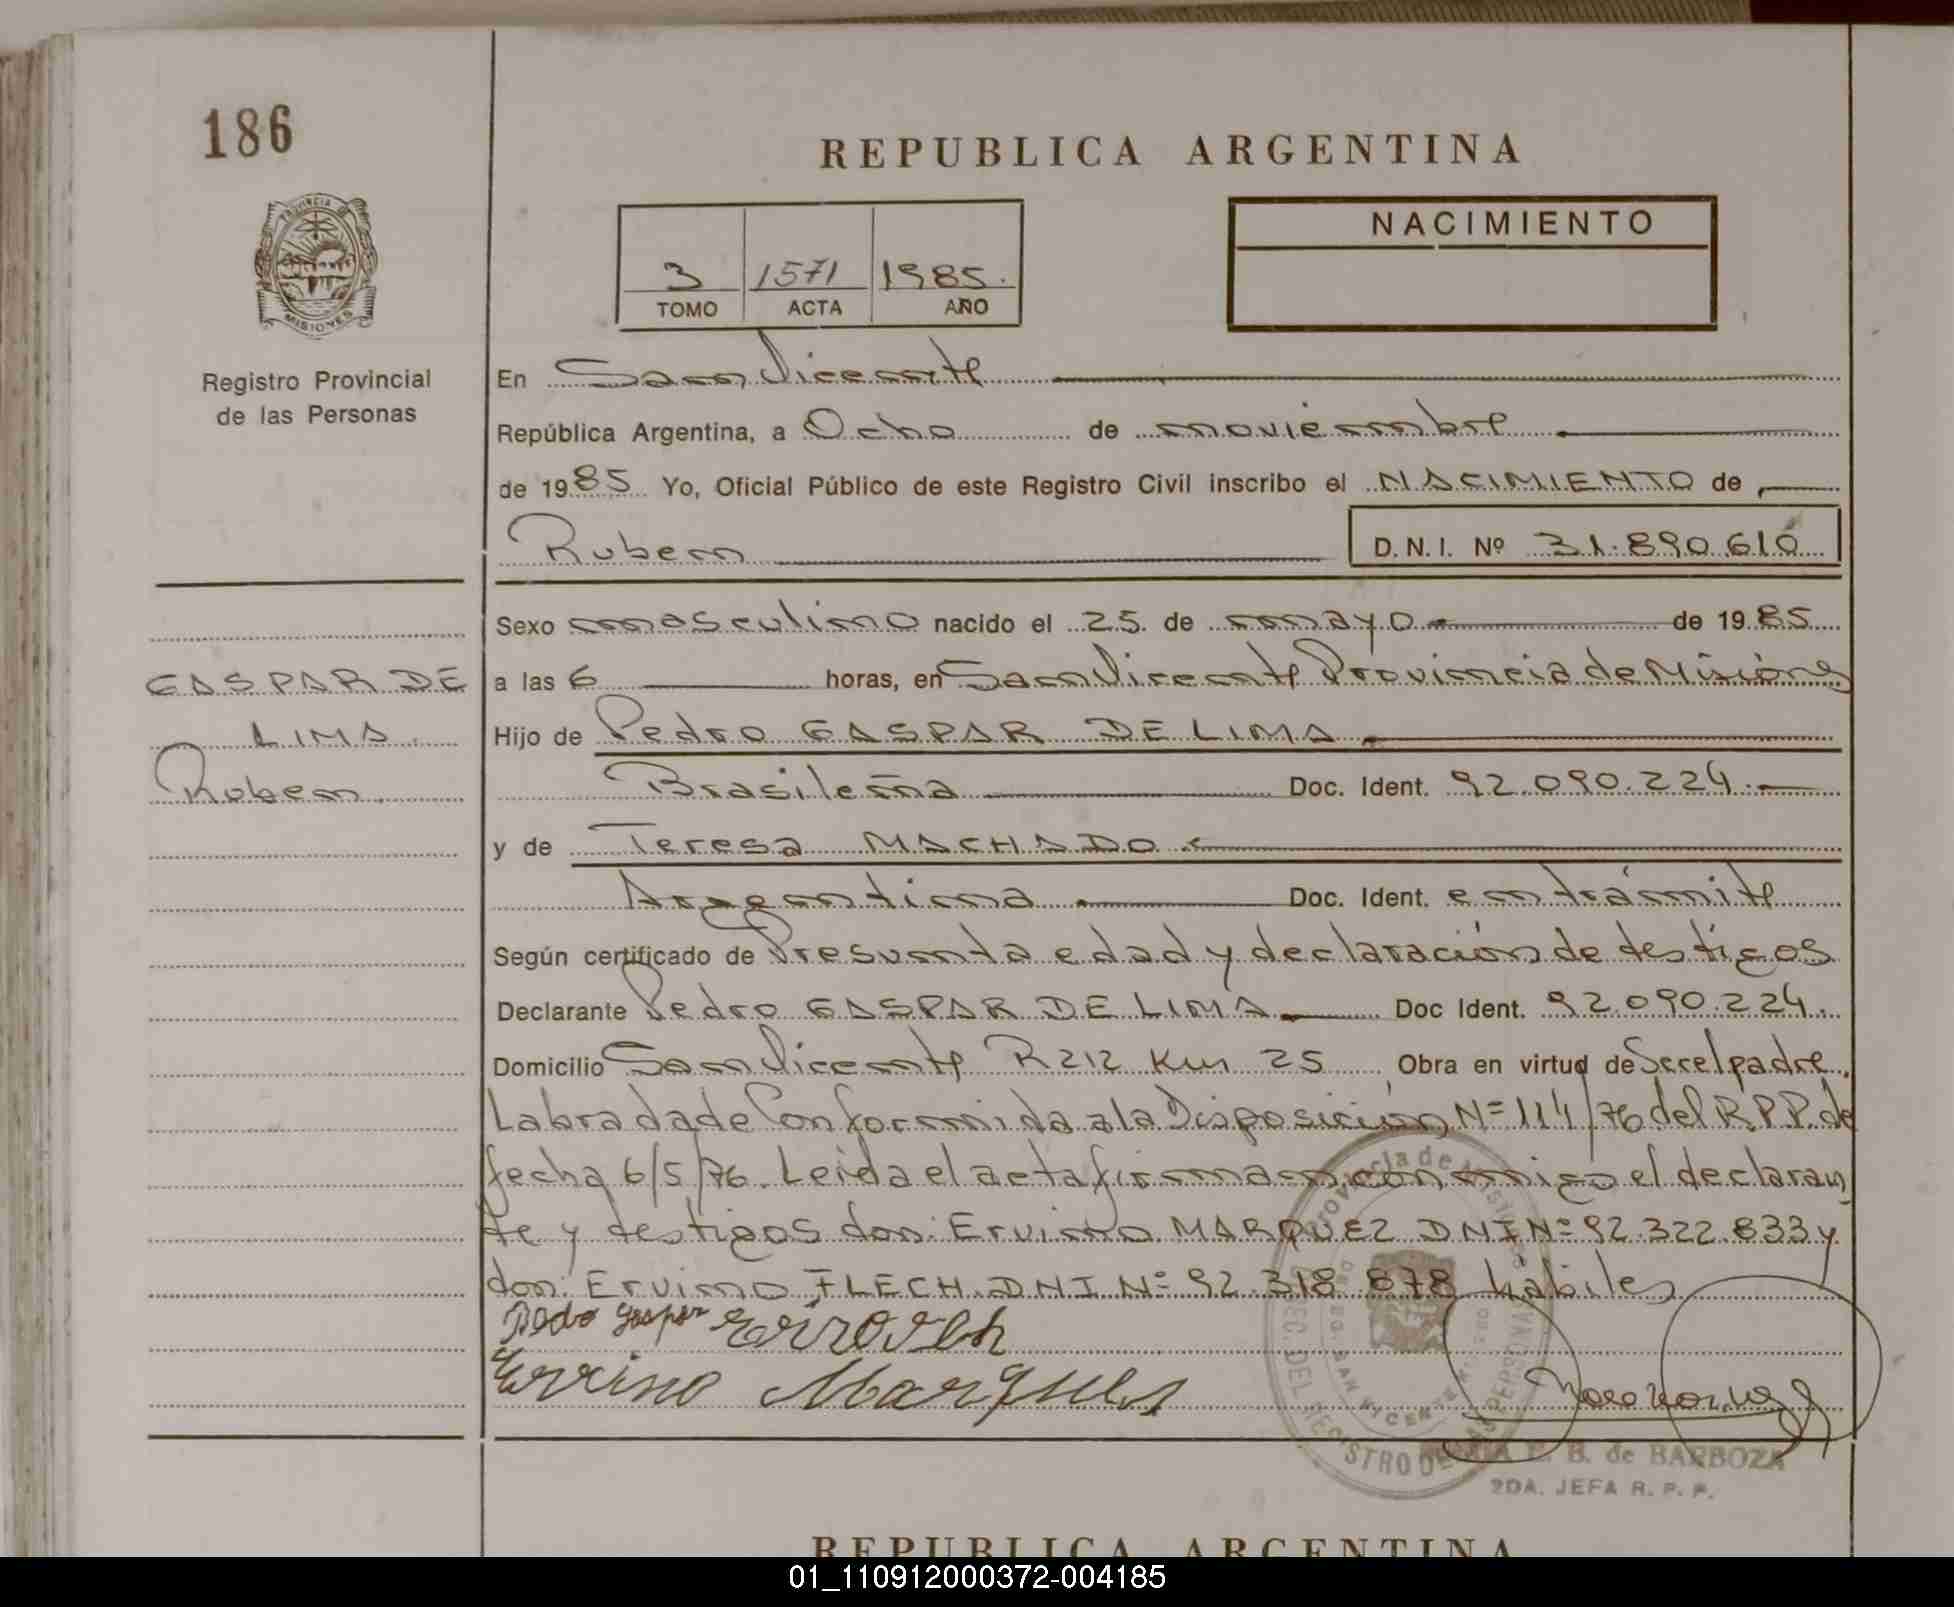 186
REPUBLICA ARGENTINA
PROVINCIA DE
MISIONES
Registro Provincial
de las Personas
3 1571 1985.
TOMO ACTA AÑO
NACIMIENTO
En San Vicente
República Argentina, a Ocho de noviembre
de 1985 Yo, Oficial Público de este Registro Civil inscribo el NACIMIENTO de
Ruben D.N.I. Nº 31.890.610
Sexo masculino nacido el 25 de mayo de 1985
GASPAR DE
LIMA
Ruben
a las 6 horas, en San Vicente Provincia de Misiones
Hijo de Pedro GASPAR DE LIMA
Brasileña Doc. Ident. 92.090.224.
y de Teresa MACHADO
Argentina Doc. Ident. en trámite
Según certificado de Presunta edad y declaración de testigos
Declarante Pedro GASPAR DE LIMA Doc Ident. 92.090.224.
Domicilio San Vicente R 212 Km 25 Obra en virtud de Ser el padre.
Labrada de Conformida a la Disposición Nº 114/76 del R.P.P. de
fecha 6/5/76. Leida el acta firman conmigo el declaran
te y testigos don: Ervino MARQUEZ DNI Nº 92.322.833 y
don: Ervino FLECH DNI Nº 92.318.878 hábiles
Pedro Gaspar
Ervino Marques
Provincia de Misiones
DEL REGISTRO DE LAS PERSONAS
SAN VICENTE
E. B. de BARBOZA
2DA. JEFA R. P. P.
REPUBLICA ARGENTINA
01_110912000372-004185